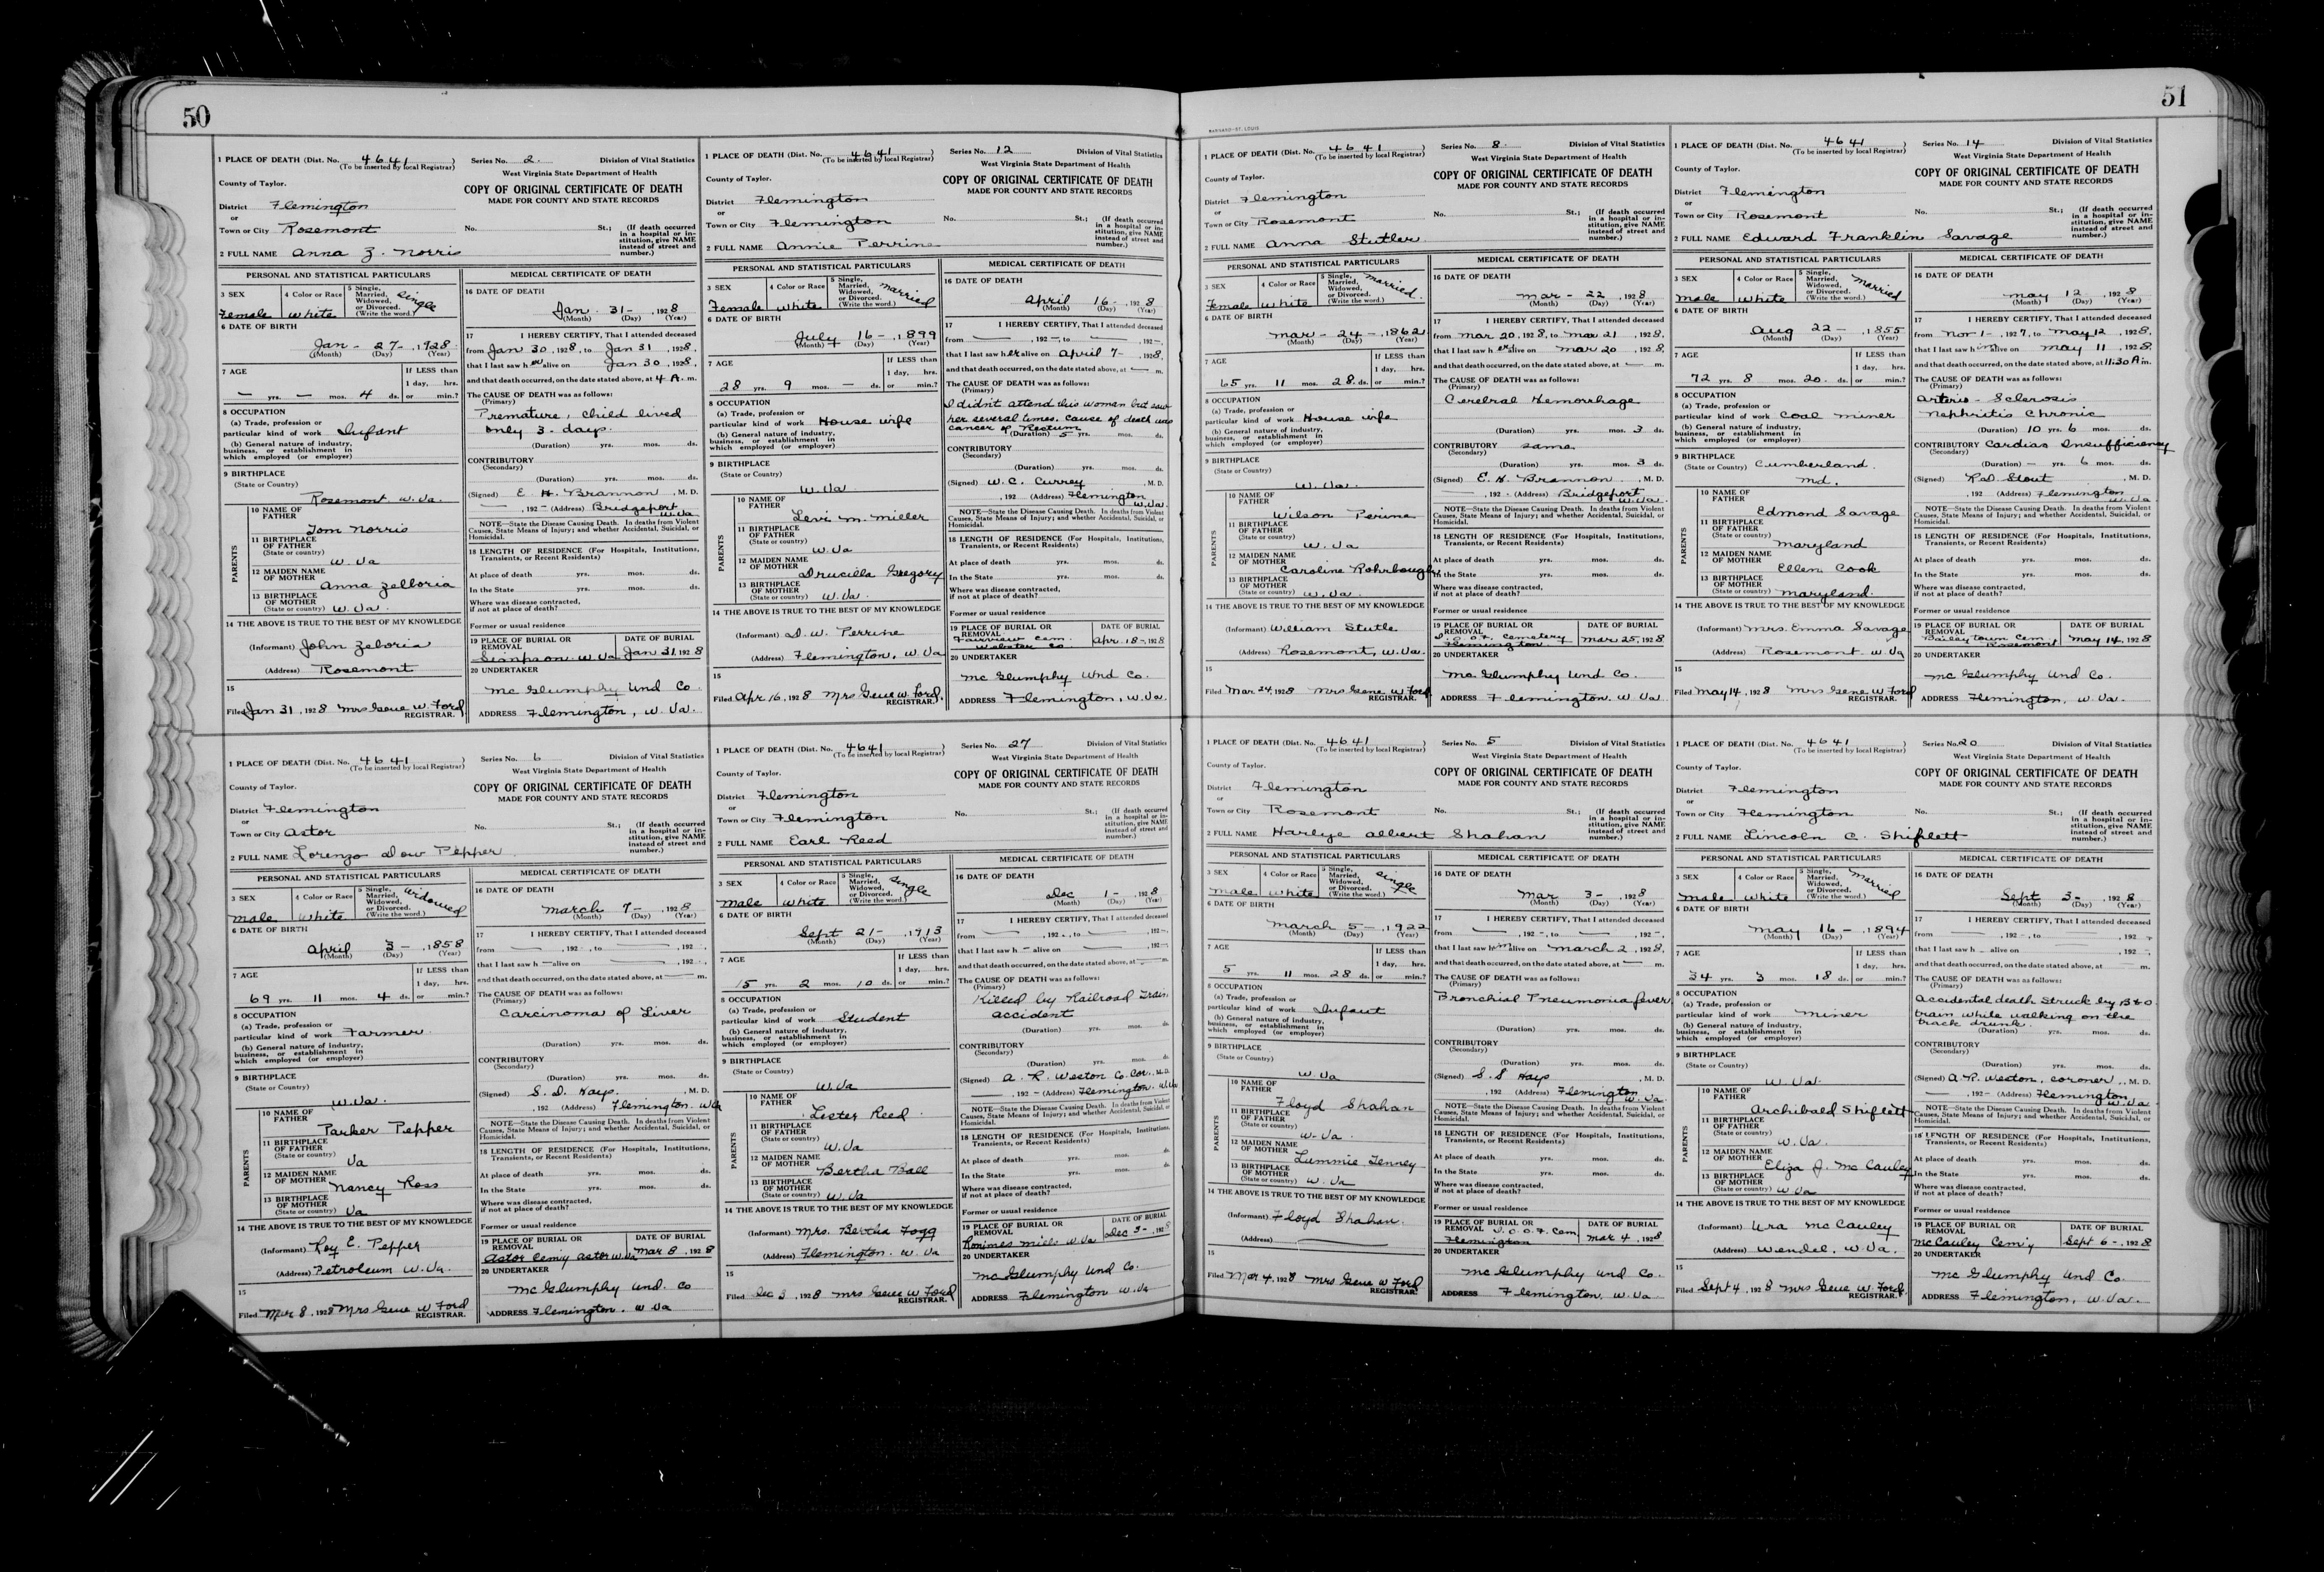 50
1 PLACE OF DEATH (Dist. No. 4641 ) Series No. 2. Division of Vital Statistics
(To be inserted by local Registrar)
West Virginia State Department of Health
County of Taylor.
COPY OF ORIGINAL CERTIFICATE OF DEATH
MADE FOR COUNTY AND STATE RECORDS
District Flemington
or
Town or City Rosemont No. St.; (If death occurred in a hospital or institution, give NAME instead of street and number.)
2 FULL NAME Anna Z. Norris
PERSONAL AND STATISTICAL PARTICULARS
3 SEX Female
4 Color or Race White
5 Single, Married, Widowed, or Divorced. (Write the word.) Single
6 DATE OF BIRTH
Jan - 27 - , 1928
(Month) (Day) (Year)
7 AGE
— yrs. — mos. 4 ds.
If LESS than 1 day, hrs. or min.?
8 OCCUPATION
(a) Trade, profession or particular kind of work Infant
(b) General nature of industry, business, or establishment in which employed (or employer)
9 BIRTHPLACE
(State or Country)
Rosemont W. Va.
PARENTS
10 NAME OF FATHER
Tom Norris
11 BIRTHPLACE OF FATHER
(State or country)
W. Va
12 MAIDEN NAME OF MOTHER
Anna Zelloria
13 BIRTHPLACE OF MOTHER
(State or country) W. Va.
14 THE ABOVE IS TRUE TO THE BEST OF MY KNOWLEDGE
(Informant) John Zeloria
(Address) Rosemont
15
Filed Jan 31 , 1928 Mrs Gene W. Ford
REGISTRAR.
MEDICAL CERTIFICATE OF DEATH
16 DATE OF DEATH
Jan. 31 - , 1928
(Month) (Day) (Year)
17 I HEREBY CERTIFY, That I attended deceased
from Jan 30 , 1928, to Jan 31 , 1928,
that I last saw her alive on Jan 30 , 1928,
and that death occurred, on the date stated above, at 4 A. m.
The CAUSE OF DEATH was as follows:
(Primary)
Premature, child lived
only 3 - days.
(Duration) yrs. mos. ds.
CONTRIBUTORY
(Secondary)
(Duration) yrs. mos. ds.
(Signed) E. H. Brannon , M. D.
— , 192 – (Address) Bridgeport W. Va
NOTE—State the Disease Causing Death. In deaths from Violent Causes, State Means of Injury; and whether Accidental, Suicidal, or Homicidal.
18 LENGTH OF RESIDENCE (For Hospitals, Institutions, Transients, or Recent Residents)
At place of death yrs. mos. ds.
In the State yrs. mos. ds.
Where was disease contracted, if not at place of death?
Former or usual residence
19 PLACE OF BURIAL OR REMOVAL DATE OF BURIAL
Simpson W. Va Jan 31, 1928
20 UNDERTAKER
Mc Glumphy Und Co.
ADDRESS Flemington, W. Va.
1 PLACE OF DEATH (Dist. No. 4641 ) Series No. 12 Division of Vital Statistics
(To be inserted by local Registrar)
West Virginia State Department of Health
County of Taylor.
COPY OF ORIGINAL CERTIFICATE OF DEATH
MADE FOR COUNTY AND STATE RECORDS
District Flemington
or
Town or City Flemington No. St.; (If death occurred in a hospital or institution, give NAME instead of street and number.)
2 FULL NAME Annie Perrine
PERSONAL AND STATISTICAL PARTICULARS
3 SEX Female
4 Color or Race White
5 Single, Married, Widowed, or Divorced. (Write the word.) Married
6 DATE OF BIRTH
July 16 - , 1899
(Month) (Day) (Year)
7 AGE
28 yrs. 9 mos. — ds.
If LESS than 1 day, hrs. or min.?
8 OCCUPATION
(a) Trade, profession or particular kind of work House wife
(b) General nature of industry, business, or establishment in which employed (or employer)
9 BIRTHPLACE
(State or Country)
W. Va
PARENTS
10 NAME OF FATHER
Levi M. Miller
11 BIRTHPLACE OF FATHER
(State or country)
W. Va
12 MAIDEN NAME OF MOTHER
Drucilla Gregory
13 BIRTHPLACE OF MOTHER
(State or country) W. Va.
14 THE ABOVE IS TRUE TO THE BEST OF MY KNOWLEDGE
(Informant) D. W. Perrine
(Address) Flemington, W. Va
15
Filed Apr 16 , 1928 Mrs Gene W. Ford.
REGISTRAR.
MEDICAL CERTIFICATE OF DEATH
16 DATE OF DEATH
April 16 - , 1928
(Month) (Day) (Year)
17 I HEREBY CERTIFY, That I attended deceased
from — , 192 –, to — , 192 –,
that I last saw her alive on April 7 - , 1928,
and that death occurred, on the date stated above, at — m.
The CAUSE OF DEATH was as follows:
(Primary)
I didn't attend this woman but saw
her several times. Cause of death was
cancer of Rectum
(Duration) 5 yrs. mos. ds.
CONTRIBUTORY
(Secondary)
(Duration) yrs. mos. ds.
(Signed) W. C. Currey , M. D.
, 192 (Address) Flemington W. Va.
NOTE—State the Disease Causing Death. In deaths from Violent Causes, State Means of Injury; and whether Accidental, Suicidal, or Homicidal.
18 LENGTH OF RESIDENCE (For Hospitals, Institutions, Transients, or Recent Residents)
At place of death yrs. mos. ds.
In the State yrs. mos. ds.
Where was disease contracted, if not at place of death?
Former or usual residence
19 PLACE OF BURIAL OR REMOVAL DATE OF BURIAL
Fairview Cem. Webster Co Apr. 18 -, 1928
20 UNDERTAKER
Mc Glumphy Und Co.
ADDRESS Flemington, W. Va.
1 PLACE OF DEATH (Dist. No. 4641 ) Series No. 6 Division of Vital Statistics
(To be inserted by local Registrar)
West Virginia State Department of Health
County of Taylor.
COPY OF ORIGINAL CERTIFICATE OF DEATH
MADE FOR COUNTY AND STATE RECORDS
District Flemington
or
Town or City Astor No. St.; (If death occurred in a hospital or institution, give NAME instead of street and number.)
2 FULL NAME Lorenzo Dow Pepper
PERSONAL AND STATISTICAL PARTICULARS
3 SEX Male
4 Color or Race White
5 Single, Married, Widowed, or Divorced. (Write the word.) Widowed
6 DATE OF BIRTH
April 3 - , 1858
(Month) (Day) (Year)
7 AGE
69 yrs. 11 mos. 4 ds.
If LESS than 1 day, hrs. or min.?
8 OCCUPATION
(a) Trade, profession or particular kind of work Farmer
(b) General nature of industry, business, or establishment in which employed (or employer)
9 BIRTHPLACE
(State or Country)
W. Va.
PARENTS
10 NAME OF FATHER
Parker Pepper
11 BIRTHPLACE OF FATHER
(State or country)
Va
12 MAIDEN NAME OF MOTHER
Nancy Ross
13 BIRTHPLACE OF MOTHER
(State or country) Va
14 THE ABOVE IS TRUE TO THE BEST OF MY KNOWLEDGE
(Informant) Roy E. Pepper
(Address) Petroleum W. Va.
15
Filed Mar 8 , 1928 Mrs Gene W Ford
REGISTRAR.
MEDICAL CERTIFICATE OF DEATH
16 DATE OF DEATH
March 7 - , 1928
(Month) (Day) (Year)
17 I HEREBY CERTIFY, That I attended deceased
from — , 192 , to — , 192 ,
that I last saw h — alive on — , 192 ,
and that death occurred, on the date stated above, at — m.
The CAUSE OF DEATH was as follows:
(Primary)
Carcinoma of Liver
(Duration) yrs. mos. ds.
CONTRIBUTORY
(Secondary)
(Duration) yrs. mos. ds.
(Signed) S. D. Hays. , M. D.
, 192 (Address) Flemington. W Va
NOTE—State the Disease Causing Death. In deaths from Violent Causes, State Means of Injury; and whether Accidental, Suicidal, or Homicidal.
18 LENGTH OF RESIDENCE (For Hospitals, Institutions, Transients, or Recent Residents)
At place of death yrs. mos. ds.
In the State yrs. mos. ds.
Where was disease contracted, if not at place of death?
Former or usual residence
19 PLACE OF BURIAL OR REMOVAL DATE OF BURIAL
Astor Cem'y Astor W. Va Mar 8 , 1928
20 UNDERTAKER
Mc Glumphy Und. Co
ADDRESS Flemington. W Va
1 PLACE OF DEATH (Dist. No. 4641 ) Series No. 27 Division of Vital Statistics
(To be inserted by local Registrar)
West Virginia State Department of Health
County of Taylor.
COPY OF ORIGINAL CERTIFICATE OF DEATH
MADE FOR COUNTY AND STATE RECORDS
District Flemington
or
Town or City Flemington No. St.; (If death occurred in a hospital or institution, give NAME instead of street and number.)
2 FULL NAME Earl Reed
PERSONAL AND STATISTICAL PARTICULARS
3 SEX Male
4 Color or Race White
5 Single, Married, Widowed, or Divorced. (Write the word.) Single
6 DATE OF BIRTH
Sept 21 - , 1913
(Month) (Day) (Year)
7 AGE
15 yrs. 2 mos. 10 ds.
If LESS than 1 day, hrs. or min.?
8 OCCUPATION
(a) Trade, profession or particular kind of work Student
(b) General nature of industry, business, or establishment in which employed (or employer)
9 BIRTHPLACE
(State or Country)
W. Va
PARENTS
10 NAME OF FATHER
Lester Reed
11 BIRTHPLACE OF FATHER
(State or country)
W. Va
12 MAIDEN NAME OF MOTHER
Bertha Ball
13 BIRTHPLACE OF MOTHER
(State or country) W. Va
14 THE ABOVE IS TRUE TO THE BEST OF MY KNOWLEDGE
(Informant) Mrs. Bertha Fogg
(Address) Flemington. W. Va
15
Filed Dec 3 , 1928 Mrs Gene W Ford
REGISTRAR.
MEDICAL CERTIFICATE OF DEATH
16 DATE OF DEATH
Dec 1 - , 1928
(Month) (Day) (Year)
17 I HEREBY CERTIFY, That I attended deceased
from — , 192 –, to — , 192 –,
that I last saw h – alive on — , 192 –,
and that death occurred, on the date stated above, at — m.
The CAUSE OF DEATH was as follows:
(Primary)
Killed by Railroad Train
accident
(Duration) yrs. mos. ds.
CONTRIBUTORY
(Secondary)
(Duration) yrs. mos. ds.
(Signed) A. R. Weston Co. Cor., M. D.
— , 192 – (Address) Flemington. W. Va
NOTE—State the Disease Causing Death. In deaths from Violent Causes, State Means of Injury; and whether Accidental, Suicidal, or Homicidal.
18 LENGTH OF RESIDENCE (For Hospitals, Institutions, Transients, or Recent Residents)
At place of death yrs. mos. ds.
In the State yrs. mos. ds.
Where was disease contracted, if not at place of death?
Former or usual residence
19 PLACE OF BURIAL OR REMOVAL DATE OF BURIAL
Mills W. Va Dec 3 - , 1928
20 UNDERTAKER
Mc Glumphy Und Co.
ADDRESS Flemington W. Va
51
BARNARD—ST. LOUIS
1 PLACE OF DEATH (Dist. No. 4641 ) Series No. 8. Division of Vital Statistics
(To be inserted by local Registrar)
West Virginia State Department of Health
County of Taylor.
COPY OF ORIGINAL CERTIFICATE OF DEATH
MADE FOR COUNTY AND STATE RECORDS
District Flemington
or
Town or City Rosemont No. St.; (If death occurred in a hospital or institution, give NAME instead of street and number.)
2 FULL NAME Anna Stutler
PERSONAL AND STATISTICAL PARTICULARS
3 SEX Female
4 Color or Race White
5 Single, Married, Widowed, or Divorced. (Write the word.) Married.
6 DATE OF BIRTH
Mar - 24 - , 1862
(Month) (Day) (Year)
7 AGE
65 yrs. 11 mos. 28. ds.
If LESS than 1 day, hrs. or min.?
8 OCCUPATION
(a) Trade, profession or particular kind of work House wife
(b) General nature of industry, business, or establishment in which employed (or employer)
9 BIRTHPLACE
(State or Country)
W. Va.
PARENTS
10 NAME OF FATHER
Wilson
11 BIRTHPLACE OF FATHER
(State or country)
W. Va
12 MAIDEN NAME OF MOTHER
Caroline Rohrbough
13 BIRTHPLACE OF MOTHER
(State or country) W. Va.
14 THE ABOVE IS TRUE TO THE BEST OF MY KNOWLEDGE
(Informant) William Stutle
(Address) Rosemont, W. Va.
15
Filed Mar. 24, 1928 Mrs Gene W Ford
REGISTRAR.
MEDICAL CERTIFICATE OF DEATH
16 DATE OF DEATH
Mar - 22 , 1928
(Month) (Day) (Year)
17 I HEREBY CERTIFY, That I attended deceased
from Mar 20, 1928, to Mar 21 , 1928,
that I last saw her alive on Mar 20 , 1928,
and that death occurred, on the date stated above, at — m.
The CAUSE OF DEATH was as follows:
(Primary)
Cerebral Hemorrhage
(Duration) yrs. mos. 3 ds.
CONTRIBUTORY same
(Secondary)
(Duration) yrs. mos. 3 ds.
(Signed) E. H. Brannon , M. D.
— , 192 - (Address) Bridgeport W. Va.
NOTE—State the Disease Causing Death. In deaths from Violent Causes, State Means of Injury; and whether Accidental, Suicidal, or Homicidal.
18 LENGTH OF RESIDENCE (For Hospitals, Institutions, Transients, or Recent Residents)
At place of death yrs. mos. ds.
In the State yrs. mos. ds.
Where was disease contracted, if not at place of death?
Former or usual residence
19 PLACE OF BURIAL OR REMOVAL DATE OF BURIAL
I. O. O. F. Cemetery Flemington Mar 25, 1928
20 UNDERTAKER
Mc Glumphy Und Co.
ADDRESS Flemington. W Va.
1 PLACE OF DEATH (Dist. No. 4641 ) Series No. 14 Division of Vital Statistics
(To be inserted by local Registrar)
West Virginia State Department of Health
County of Taylor.
COPY OF ORIGINAL CERTIFICATE OF DEATH
MADE FOR COUNTY AND STATE RECORDS
District Flemington
or
Town or City Rosemont No. St.; (If death occurred in a hospital or institution, give NAME instead of street and number.)
2 FULL NAME Edward Franklin Savage
PERSONAL AND STATISTICAL PARTICULARS
3 SEX Male
4 Color or Race White
5 Single, Married, Widowed, or Divorced. (Write the word.) Married
6 DATE OF BIRTH
Aug 22 - , 1855
(Month) (Day) (Year)
7 AGE
72 yrs. 8 mos. 20. ds.
If LESS than 1 day, hrs. or min.?
8 OCCUPATION
(a) Trade, profession or particular kind of work Coal miner
(b) General nature of industry, business, or establishment in which employed (or employer)
9 BIRTHPLACE
(State or Country) Cumberland.
Md.
PARENTS
10 NAME OF FATHER
Edmond Savage
11 BIRTHPLACE OF FATHER
(State or country)
Maryland
12 MAIDEN NAME OF MOTHER
Ellen Cook
13 BIRTHPLACE OF MOTHER
(State or country) Maryland.
14 THE ABOVE IS TRUE TO THE BEST OF MY KNOWLEDGE
(Informant) Mrs. Emma Savage
(Address) Rosemont. W. Va
15
Filed May 14 , 1928 Mrs Gene W Ford
REGISTRAR.
MEDICAL CERTIFICATE OF DEATH
16 DATE OF DEATH
May 12 , 1928
(Month) (Day) (Year)
17 I HEREBY CERTIFY, That I attended deceased
from Nov 1 - , 1927, to May 12 , 1928,
that I last saw him alive on May 11 , 1928.
and that death occurred, on the date stated above, at 11:30 A m.
The CAUSE OF DEATH was as follows:
(Primary)
Arterio - Sclerosis
Nephritis Chronic
(Duration) 10 yrs. 6 mos. ds.
CONTRIBUTORY Cardiac Insufficiency
(Secondary)
(Duration) — yrs. 6 mos. ds.
(Signed) R. D. Stout , M. D.
, 192 (Address) Flemington W. Va
NOTE—State the Disease Causing Death. In deaths from Violent Causes, State Means of Injury; and whether Accidental, Suicidal, or Homicidal.
18 LENGTH OF RESIDENCE (For Hospitals, Institutions, Transients, or Recent Residents)
At place of death yrs. mos. ds.
In the State yrs. mos. ds.
Where was disease contracted, if not at place of death?
Former or usual residence
19 PLACE OF BURIAL OR REMOVAL DATE OF BURIAL
Bailey town Cem. Rosemont May 14, 1928
20 UNDERTAKER
Mc Glumphy Und Co.
ADDRESS Flemington, W. Va.
1 PLACE OF DEATH (Dist. No. 4641 ) Series No. 5 Division of Vital Statistics
(To be inserted by local Registrar)
West Virginia State Department of Health
County of Taylor.
COPY OF ORIGINAL CERTIFICATE OF DEATH
MADE FOR COUNTY AND STATE RECORDS
District Flemington
or
Town or City Rosemont No. St.; (If death occurred in a hospital or institution, give NAME instead of street and number.)
2 FULL NAME Harlye Albert Shahan
PERSONAL AND STATISTICAL PARTICULARS
3 SEX Male
4 Color or Race White
5 Single, Married, Widowed, or Divorced. (Write the word.) Single
6 DATE OF BIRTH
March 5 - , 1922
(Month) (Day) (Year)
7 AGE
5 yrs. 11 mos. 28 ds.
If LESS than 1 day, hrs. or min.?
8 OCCUPATION
(a) Trade, profession or particular kind of work Infant
(b) General nature of industry, business, or establishment in which employed (or employer)
9 BIRTHPLACE
(State or Country)
W. Va
PARENTS
10 NAME OF FATHER
Floyd Shahan
11 BIRTHPLACE OF FATHER
(State or country)
W. Va.
12 MAIDEN NAME OF MOTHER
Lummie Tenney
13 BIRTHPLACE OF MOTHER
(State or country) W. Va
14 THE ABOVE IS TRUE TO THE BEST OF MY KNOWLEDGE
(Informant) Floyd Shahan.
(Address) —
15
Filed Mar 4, 1928 Mrs Gene W Ford
REGISTRAR.
MEDICAL CERTIFICATE OF DEATH
16 DATE OF DEATH
Mar 3 - , 1928
(Month) (Day) (Year)
17 I HEREBY CERTIFY, That I attended deceased
from — , 192 –, to — , 192 –,
that I last saw him alive on March 2 , 1928,
and that death occurred, on the date stated above, at — m.
The CAUSE OF DEATH was as follows:
(Primary)
Bronchial Pneumonia fever
(Duration) yrs. mos. ds.
CONTRIBUTORY
(Secondary)
(Duration) yrs. mos. ds.
(Signed) S. S Hays , M. D.
, 192 (Address) Flemington W. Va.
NOTE—State the Disease Causing Death. In deaths from Violent Causes, State Means of Injury; and whether Accidental, Suicidal, or Homicidal.
18 LENGTH OF RESIDENCE (For Hospitals, Institutions, Transients, or Recent Residents)
At place of death yrs. mos. ds.
In the State yrs. mos. ds.
Where was disease contracted, if not at place of death?
Former or usual residence
19 PLACE OF BURIAL OR REMOVAL DATE OF BURIAL
I. O. O. F. Cem. Flemington Mar 4 , 1928
20 UNDERTAKER
Mc Glumphy Und Co.
ADDRESS Flemington, W. Va
1 PLACE OF DEATH (Dist. No. 4641 ) Series No. 20 Division of Vital Statistics
(To be inserted by local Registrar)
West Virginia State Department of Health
County of Taylor.
COPY OF ORIGINAL CERTIFICATE OF DEATH
MADE FOR COUNTY AND STATE RECORDS
District Flemington
or
Town or City Flemington No. St.; (If death occurred in a hospital or institution, give NAME instead of street and number.)
2 FULL NAME Lincoln C. Shiflett
PERSONAL AND STATISTICAL PARTICULARS
3 SEX Male
4 Color or Race White
5 Single, Married, Widowed, or Divorced. (Write the word.) Married
6 DATE OF BIRTH
May 16 - , 1894
(Month) (Day) (Year)
7 AGE
34 yrs. 3 mos. 18 ds.
If LESS than 1 day, hrs. or min.?
8 OCCUPATION
(a) Trade, profession or particular kind of work miner
(b) General nature of industry, business, or establishment in which employed (or employer)
9 BIRTHPLACE
(State or Country)
W. Va.
PARENTS
10 NAME OF FATHER
Archibald Shiflett
11 BIRTHPLACE OF FATHER
(State or country)
W. Va.
12 MAIDEN NAME OF MOTHER
Eliza J. Mc Cauley
13 BIRTHPLACE OF MOTHER
(State or country) W Va
14 THE ABOVE IS TRUE TO THE BEST OF MY KNOWLEDGE
(Informant) Ura McCauley
(Address) Wendel, W. Va.
15
Filed Sept 4 , 1928 Mrs Gene W. Ford.
REGISTRAR.
MEDICAL CERTIFICATE OF DEATH
16 DATE OF DEATH
Sept 3 - , 1928
(Month) (Day) (Year)
17 I HEREBY CERTIFY, That I attended deceased
from — , 192 –, to — , 192 –
that I last saw h – alive on — , 192 –,
and that death occurred, on the date stated above, at — m.
The CAUSE OF DEATH was as follows:
(Primary)
Accidental death struck by B & O
train while walking on the
track drunk.
(Duration) yrs. mos. ds.
CONTRIBUTORY
(Secondary)
(Duration) yrs. mos. ds.
(Signed) A. R. Weston, coroner , M. D.
— , 192 – (Address) Flemington W. Va
NOTE—State the Disease Causing Death. In deaths from Violent Causes, State Means of Injury; and whether Accidental, Suicidal, or Homicidal.
18 LENGTH OF RESIDENCE (For Hospitals, Institutions, Transients, or Recent Residents)
At place of death yrs. mos. ds.
In the State yrs. mos. ds.
Where was disease contracted, if not at place of death?
Former or usual residence
19 PLACE OF BURIAL OR REMOVAL DATE OF BURIAL
McCauley Cem'y Sept 6 - , 1928
20 UNDERTAKER
Mc Glumphy Und Co.
ADDRESS Flemington, W. Va.